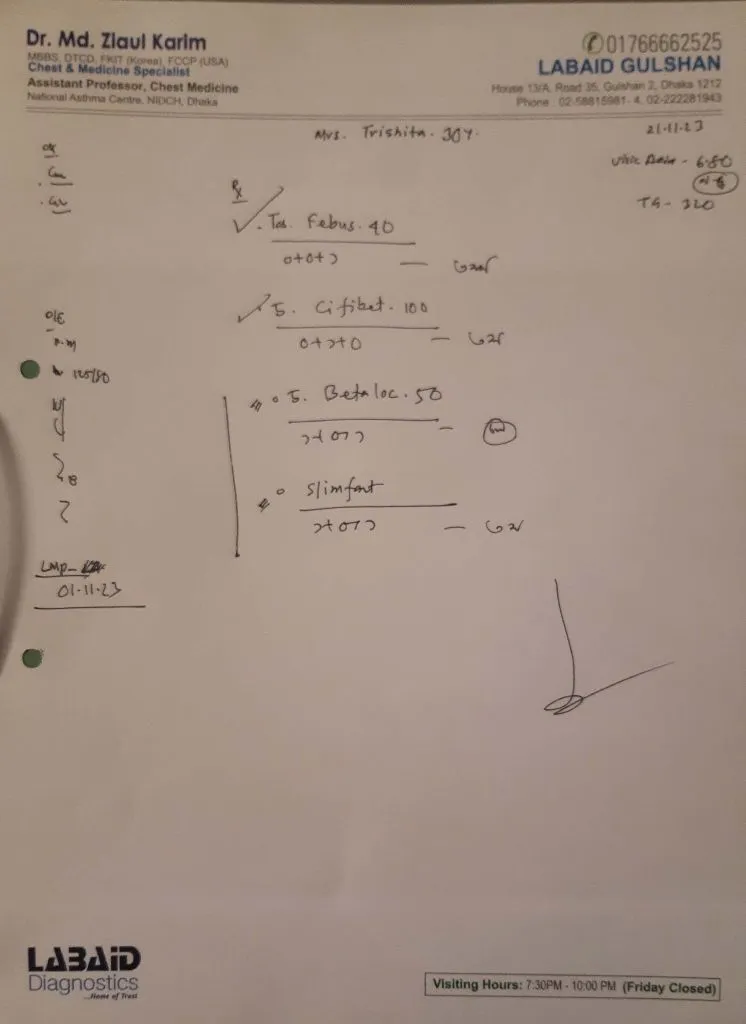 Dr. Md. Ziaul Karim
MBBS, DTCD, FKIT (Korea), FCCP (USA)
Chest & Medicine Specialist
Assistant Professor, Chest Medicine
National Asthma Centre, NIDCH, Dhaka
01766662525
LABAID GULSHAN
House 13/A, Road 35, Gulshan 2, Dhaka 1212
Phone : 02-58815981- 4, 02-222281943
Mrs. Trishita. 30Y.
21-11-23
Uric Acid - 6.80
TG - 320
Rx
Tab. Febus. 40
0+0+১
T. Cifibet. 100
0+১+0
T. Betaloc. 50
১+0+১
Slimfast
১+0+১
O/E
120/80
LMP-
01-11-23
LABAID
Diagnostics
...Home of Trust
Visiting Hours: 7:30PM - 10:00 PM (Friday Closed)